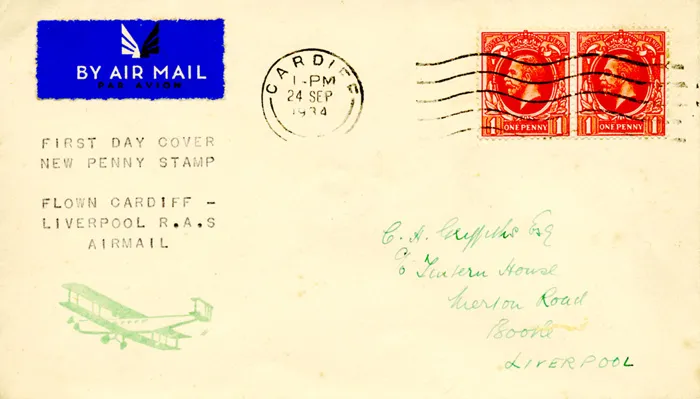 BY AIR MAIL
PAR AVION
CARDIFF
1-PM
24 SEP
1934
ONE PENNY
1 1
ONE PENNY
1 1
FIRST DAY COVER
NEW PENNY STAMP
FLOWN CARDIFF -
LIVERPOOL R.A.S
AIRMAIL
C. H. Griffiths Esq
c/o Tintern House
Merton Road
Bootle
LIVERPOOL